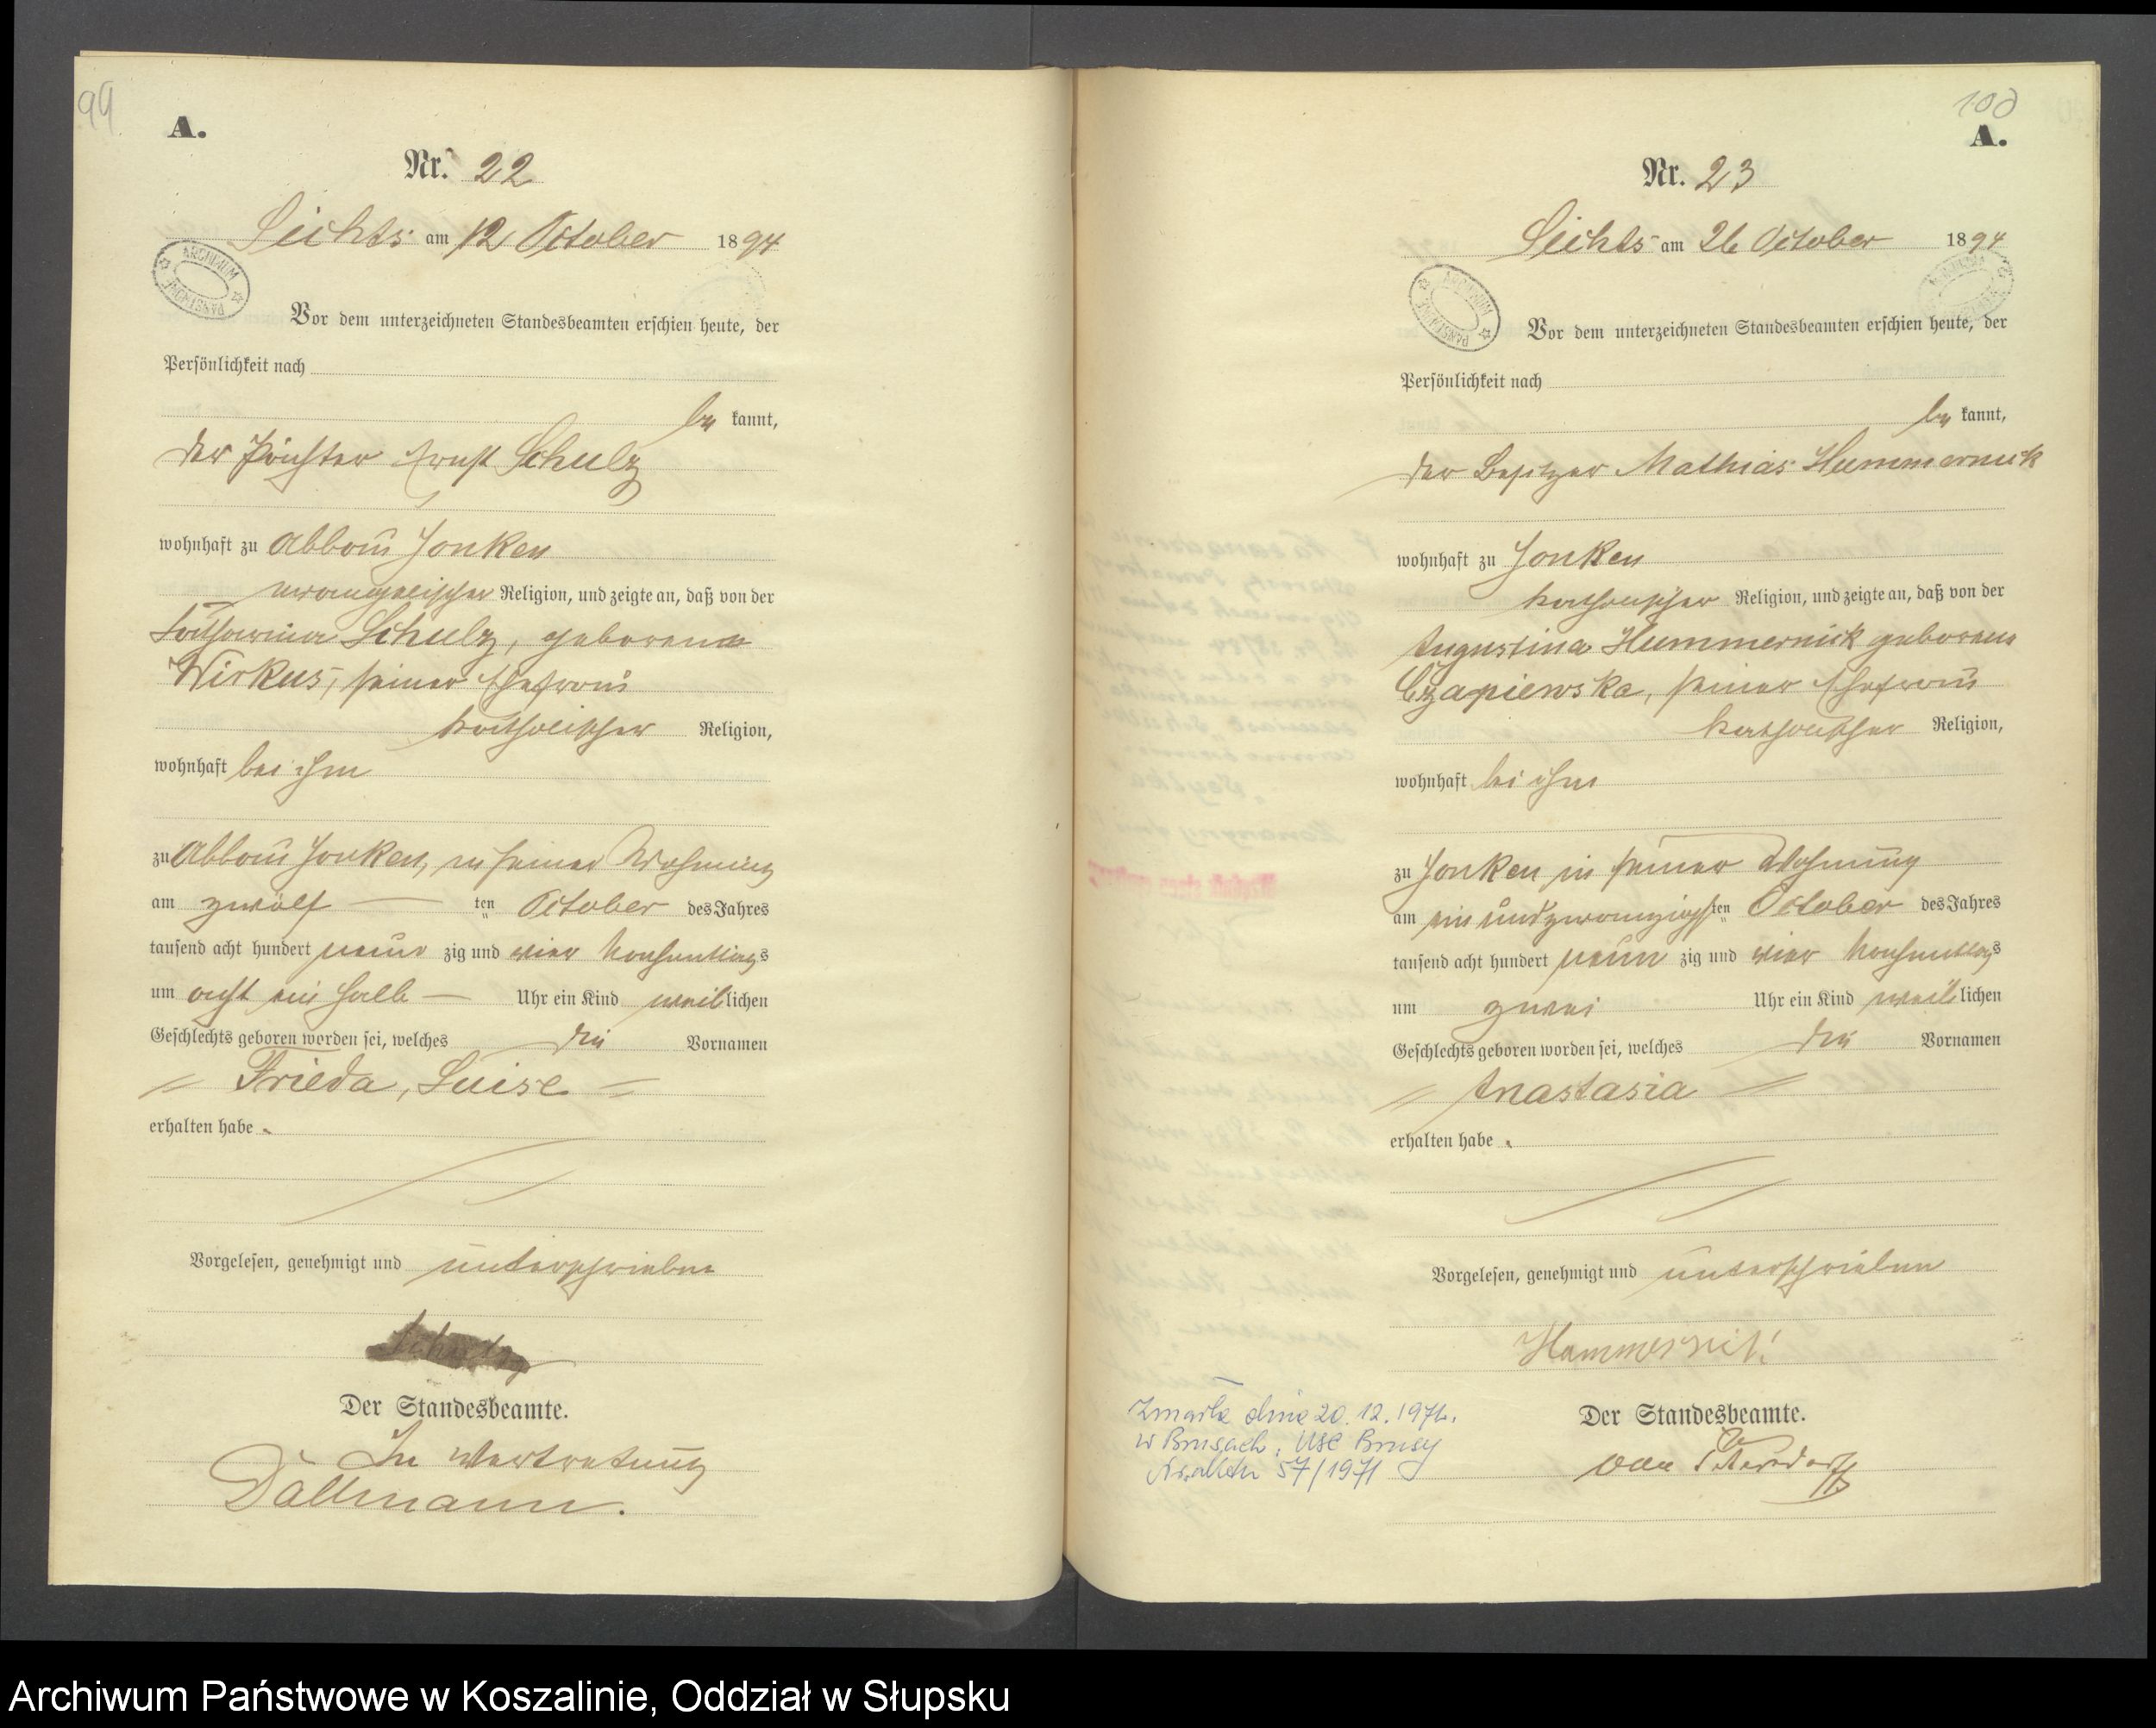 99
A.
Nr. 22
Lichts am 12 October 1894
ARCHIWUM PAŃSTWOWE
Vor dem unterzeichneten Standesbeamten erschien heute, der
Persönlichkeit nach
be kannt,
der Pächter Ernst Schulz
wohnhaft zu Abbau Jonken
evangelischer Religion, und zeigte an, daß von der
Catharina Schulz, geborene
Wirkus, seiner Ehefrau
katholischer Religion,
wohnhaft bei ihm
zu Abbau Jonken, in seiner Wohnung
am zwölf ten October des Jahres
tausend acht hundert neun zig und vier Nachmittags
um acht ein halb Uhr ein Kind weiblichen
Geschlechts geboren worden sei, welches die Vornamen
Frieda, Luise
erhalten habe.
Vorgelesen, genehmigt und unterschrieben
Schulz
Der Standesbeamte.
In Vertretung
Dallmann.
100
A.
Nr. 23
Lichts am 26 October 1894
ARCHIWUM PAŃSTWOWE
Vor dem unterzeichneten Standesbeamten erschien heute, der
Persönlichkeit nach
be kannt,
der Besitzer Mathias Hummernick
wohnhaft zu Jonken
katholischer Religion, und zeigte an, daß von der
Augustina Hummernick geborene
Czapiewska, seiner Ehefrau
katholischer Religion,
wohnhaft bei ihm
zu Jonken in seiner Wohnung
am ein und zwanzigsten October des Jahres
tausend acht hundert neun zig und vier Nachmittags
um zwei Uhr ein Kind weiblichen
Geschlechts geboren worden sei, welches die Vornamen
Anastasia
erhalten habe.
Vorgelesen, genehmigt und unterschrieben
Der Standesbeamte.
Zmarła dnia 20.12.1971.
w Brusach. USC Brusy
Nr aktu 57/1971
Archiwum Państwowe w Koszalinie, Oddział w Słupsku